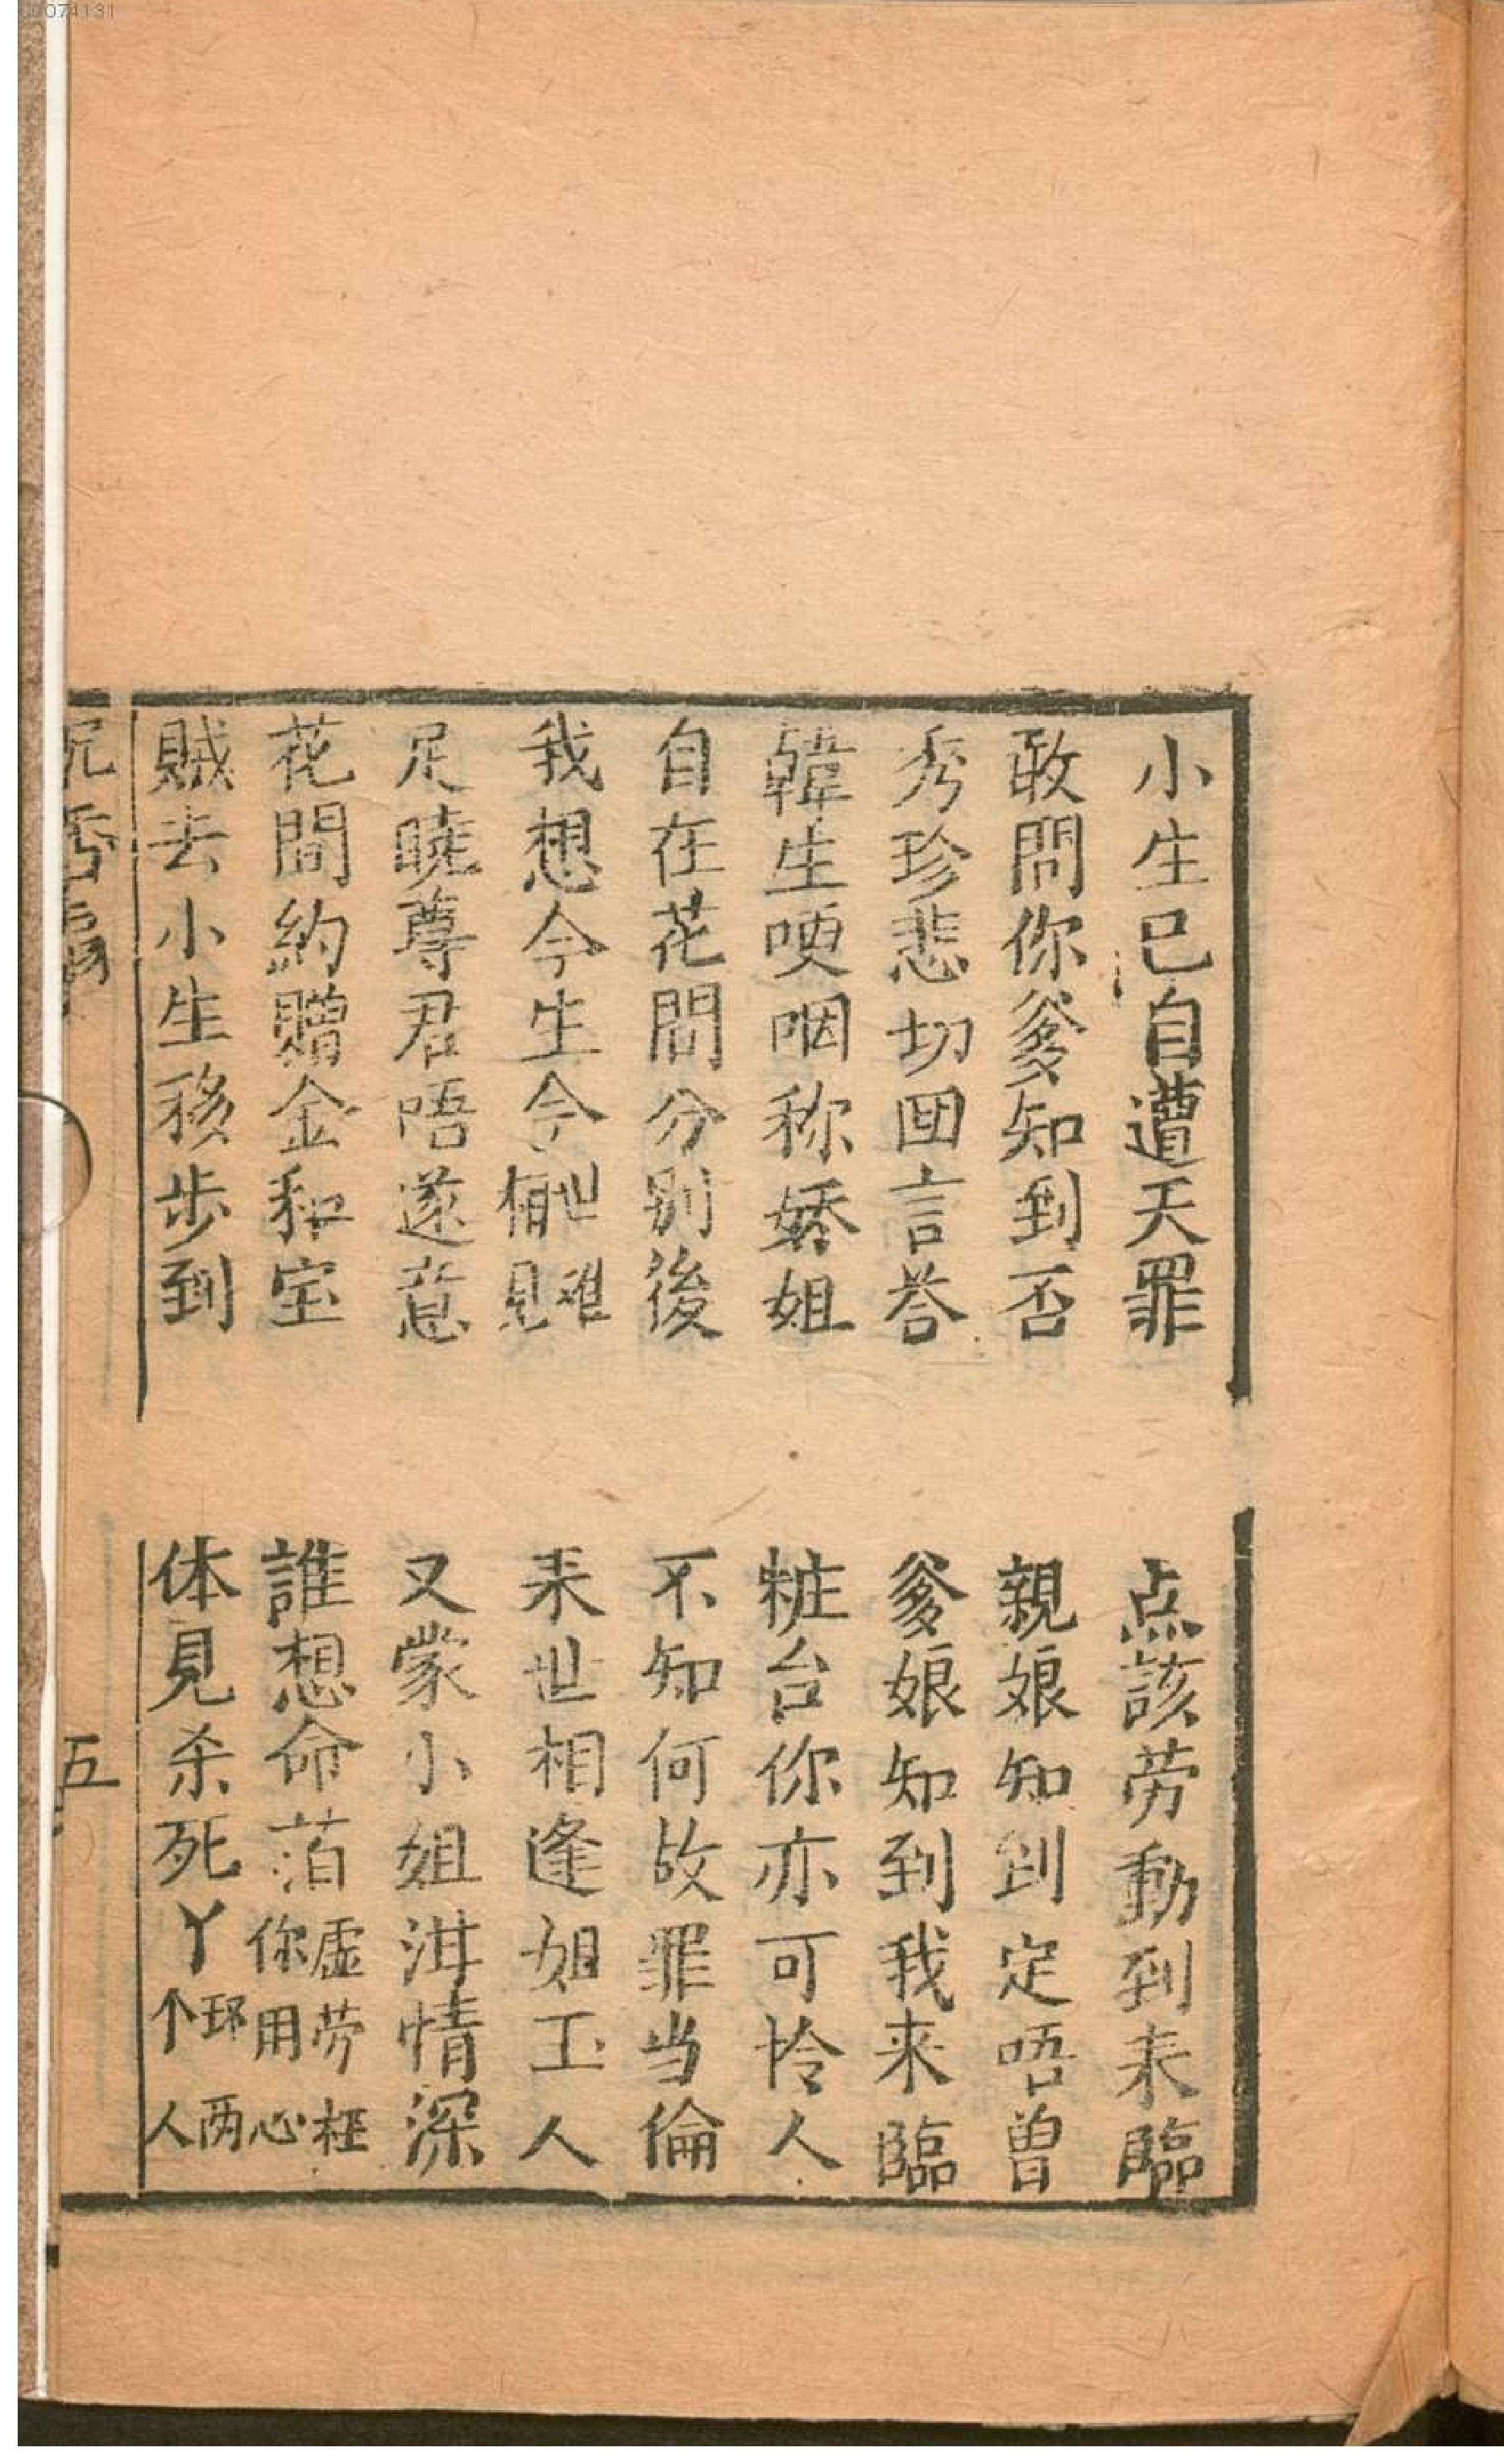 小生已自遭天罪
点該劳動到耒臨
敢問你爹知到否
親娘知到定唔曽
秀珍悲切囬言荅
爹娘知到我来臨
韓生哽咽称娇姐
粧台你亦可怜人
自在花間分别後
不知何故罪当倫
我想今生今世难有見
耒世相逢姐玉人
足曉尊君唔遂意
又蒙小姐泔情深
花間約贈金和宝
誰想命萡虚劳枉你用心
賊去小生移步到
体見杀死丫环两个人
五
00074131